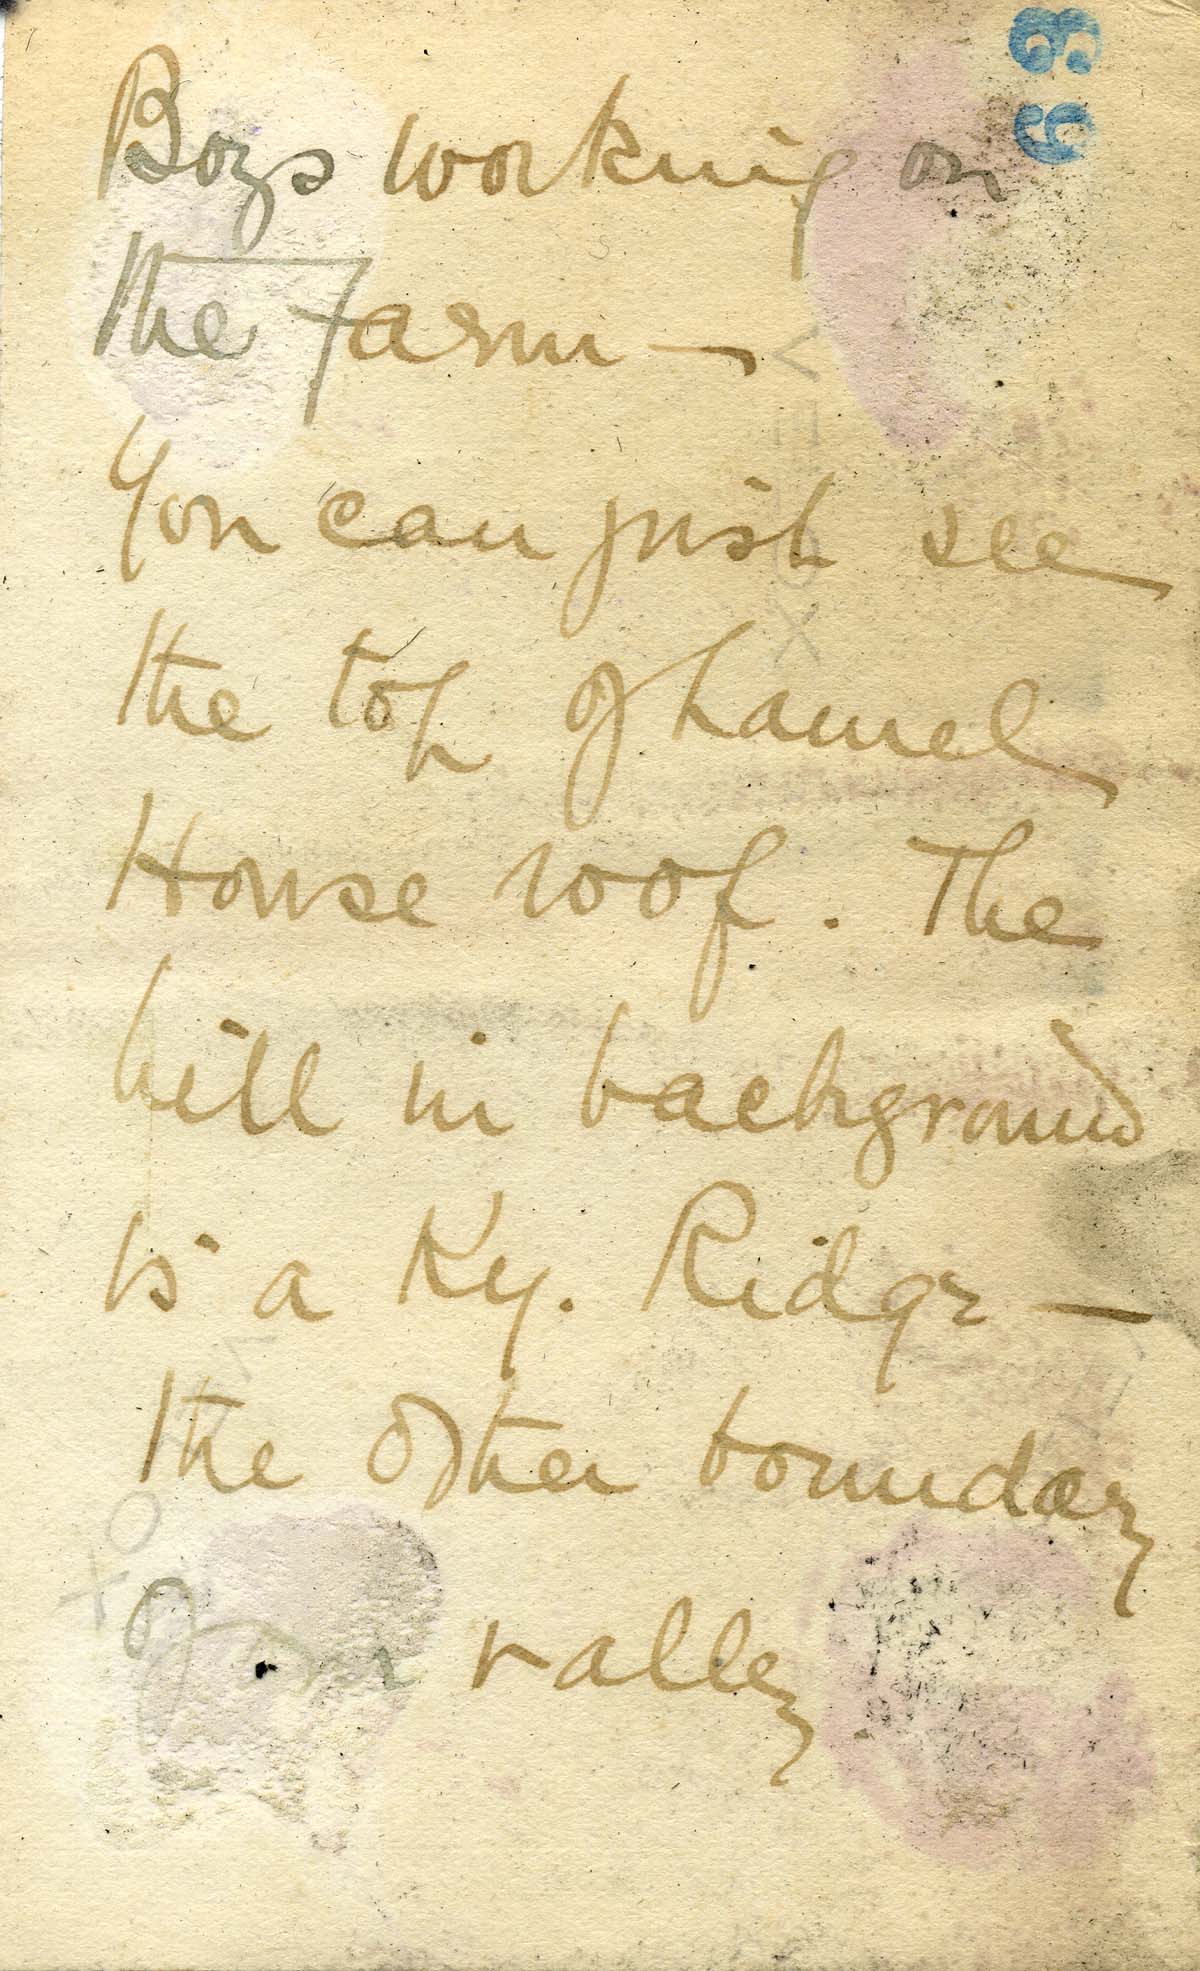 63
Boys working on
the Farm —
You can just see
the top of Laurel
House roof. The
hill in background
is a Ky. Ridge —
the other boundary
of our valley.
VELOX